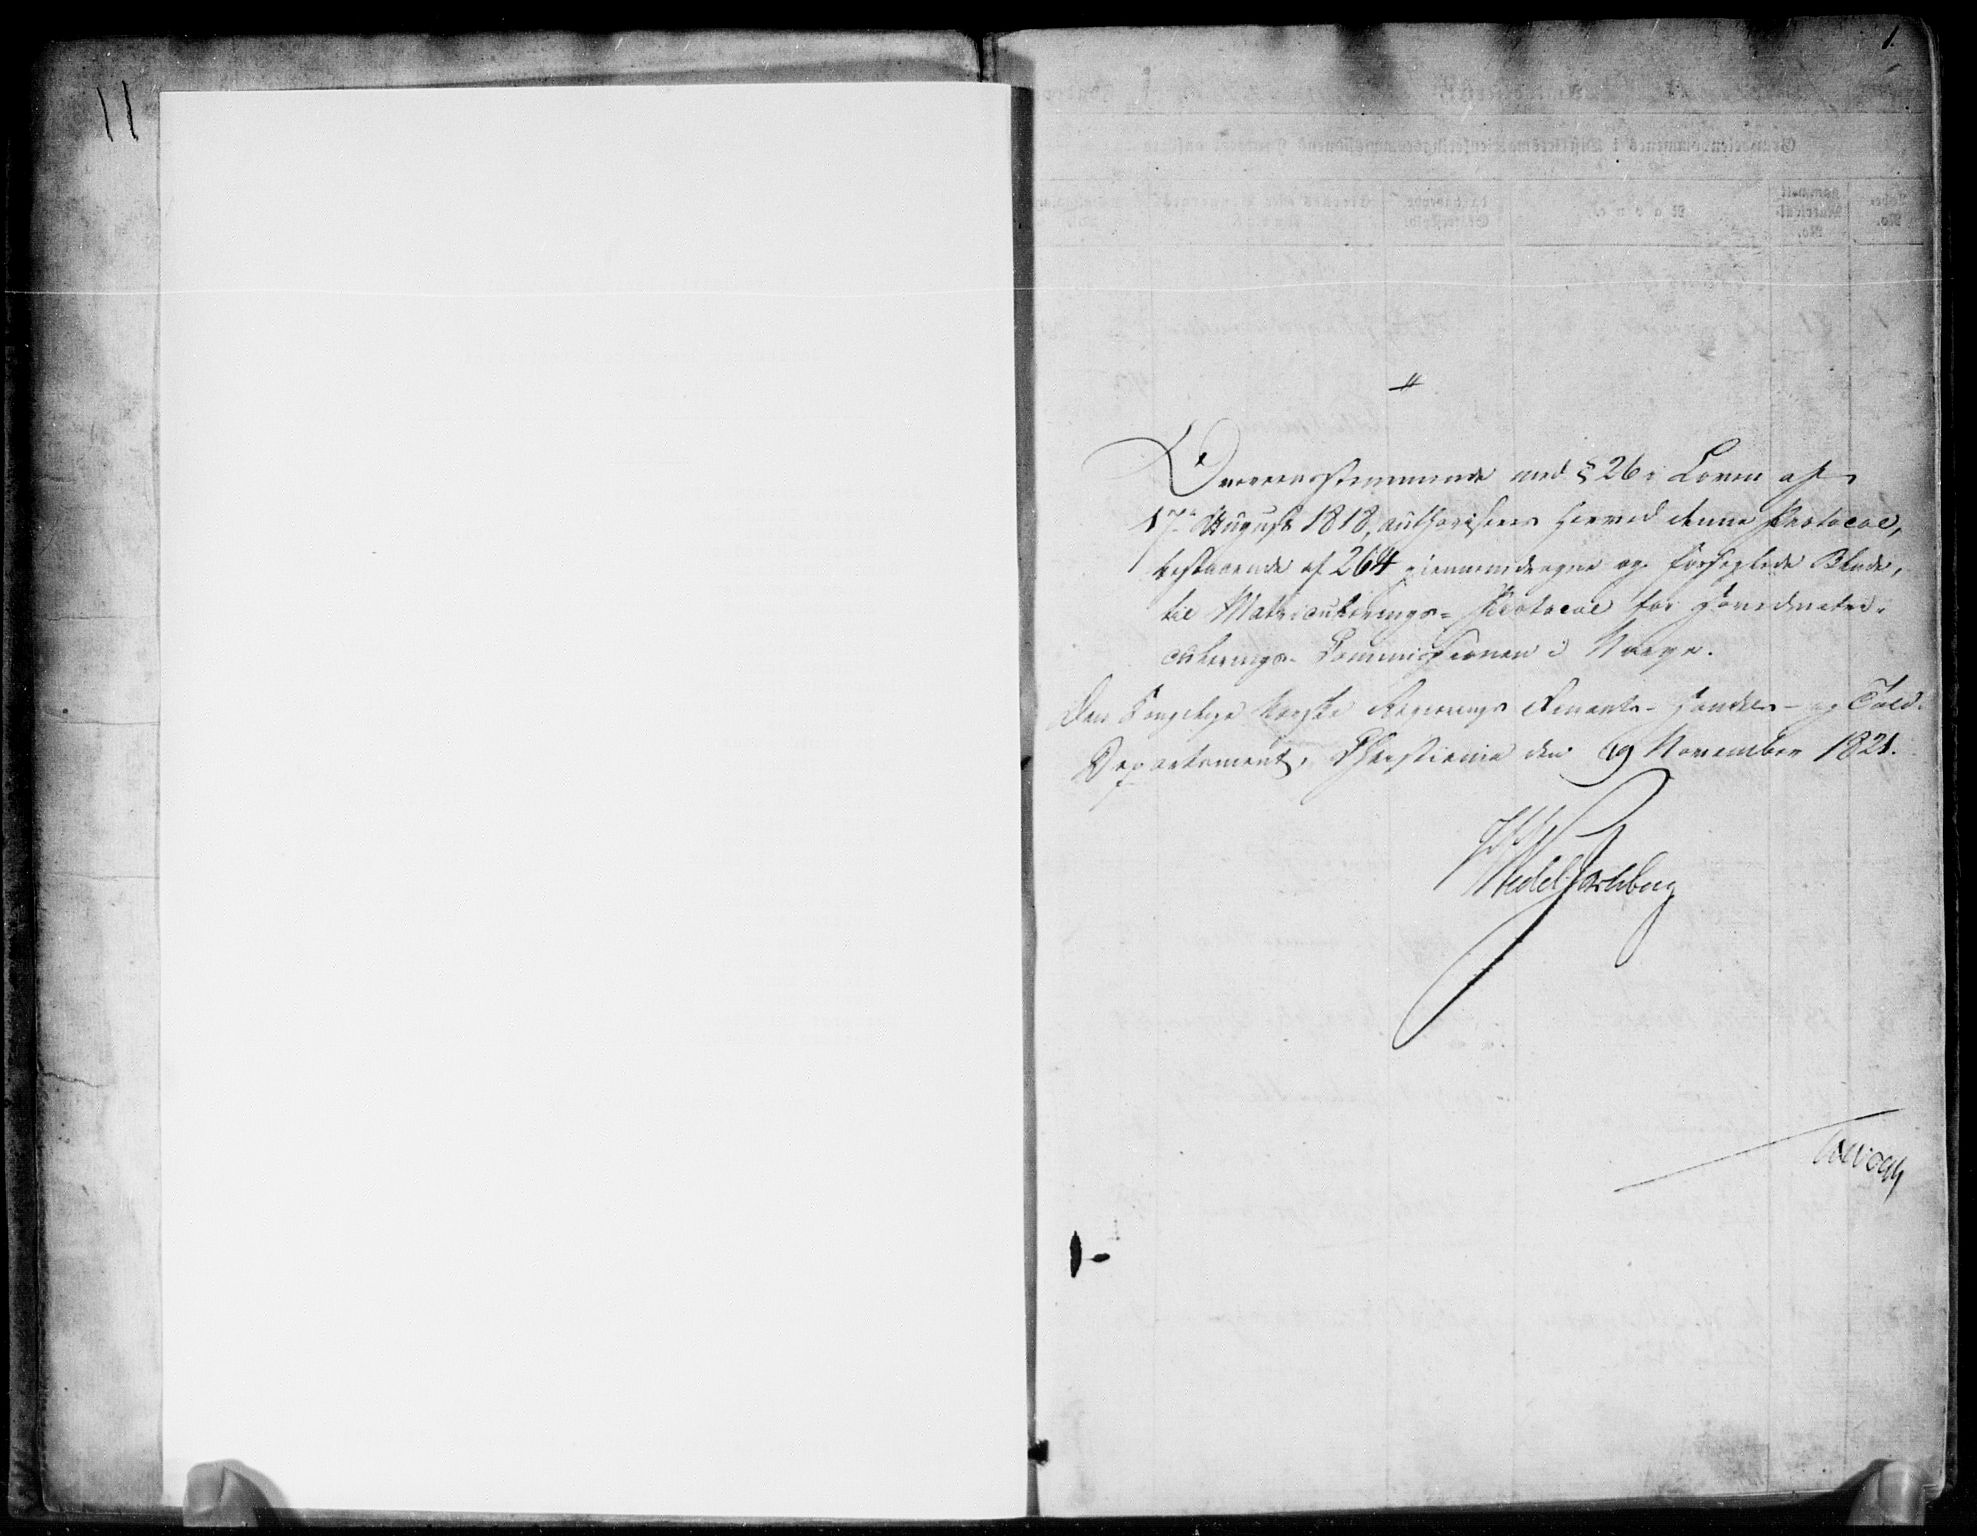 11
1.
Overeensstemmende med § 26 i Loven af
17de August 1818, authoriseres herved denne Protocol,
bestaaende af 264 giennemdragne og forseglede Blade,
til Matriculerings- Protocol for Hovedmatri-
culerings- Commissionen i Norge.
Den Kongelige Norske Regjerings Finants- Handels- og Told-
Departement, Christiania den 19 November 1821.
Wedel Jarlsberg